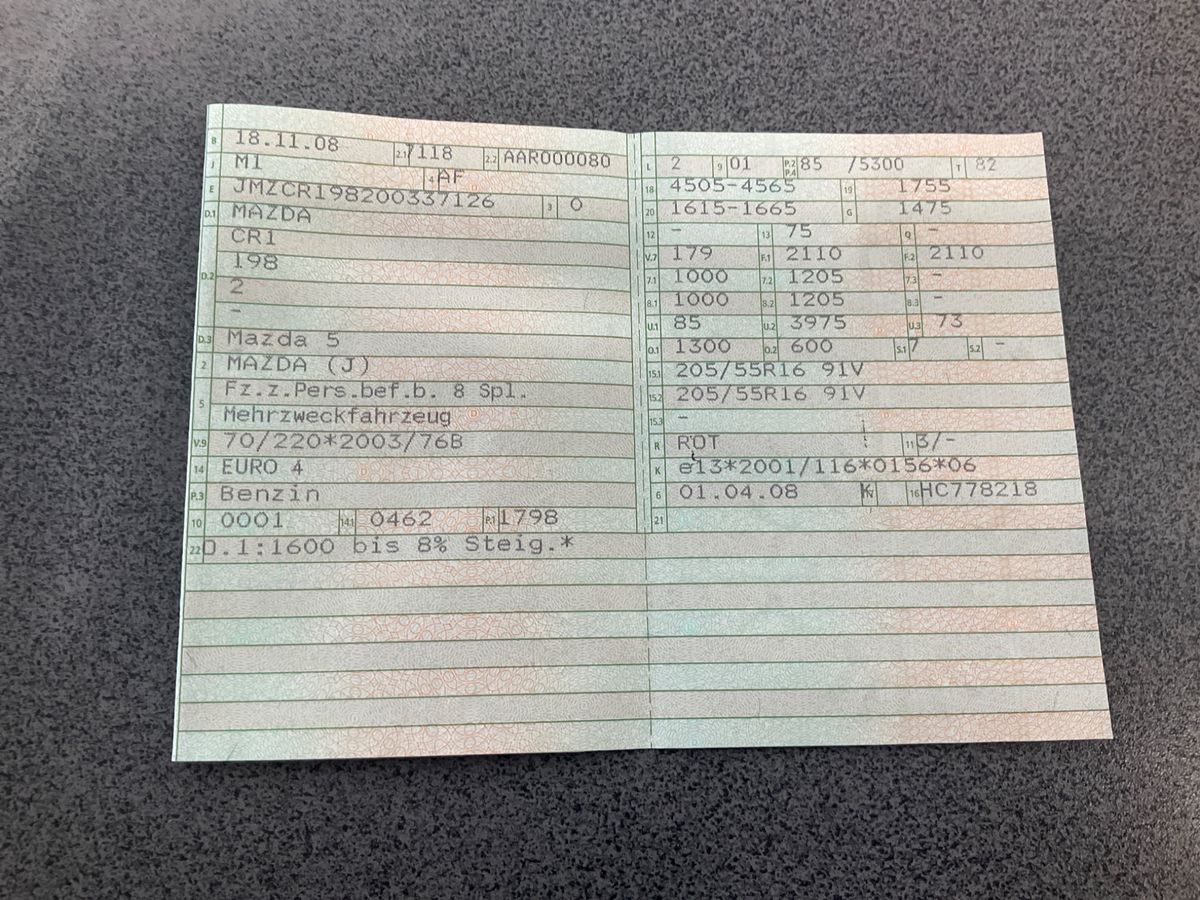 B 18.11.08 2.1 7118 2.2 AAR000080
J M1 4 AF
E JMZCR198200337126 3 0
D.1 MAZDA
D.2 CR1
198
2
-
D.3 Mazda 5
2 MAZDA (J)
5 Fz.z.Pers.bef.b. 8 Spl.
Mehrzweckfahrzeug
V.9 70/220*2003/76B
14 EURO 4
P.3 Benzin
10 0001 14.1 0462 P.1 1798
22 O.1:1600 bis 8% Steig.*
L 2 9 01 P.2 P.4 85 /5300 T 182
18 4505-4565 19 1755
20 1615-1665 G 1475
12 - 13 75 Q -
V.7 179 F.1 2110 F.2 2110
7.1 1000 7.2 1205 7.3 -
8.1 1000 8.2 1205 8.3 -
U.1 85 U.2 3975 U.3 73
O.1 1300 O.2 600 S.1 7 S.2 -
15.1 205/55R16 91V
15.2 205/55R16 91V
15.3 -
R ROT 11 3/-
K e13*2001/116*0156*06
6 01.04.08 K 16 HC778218
21